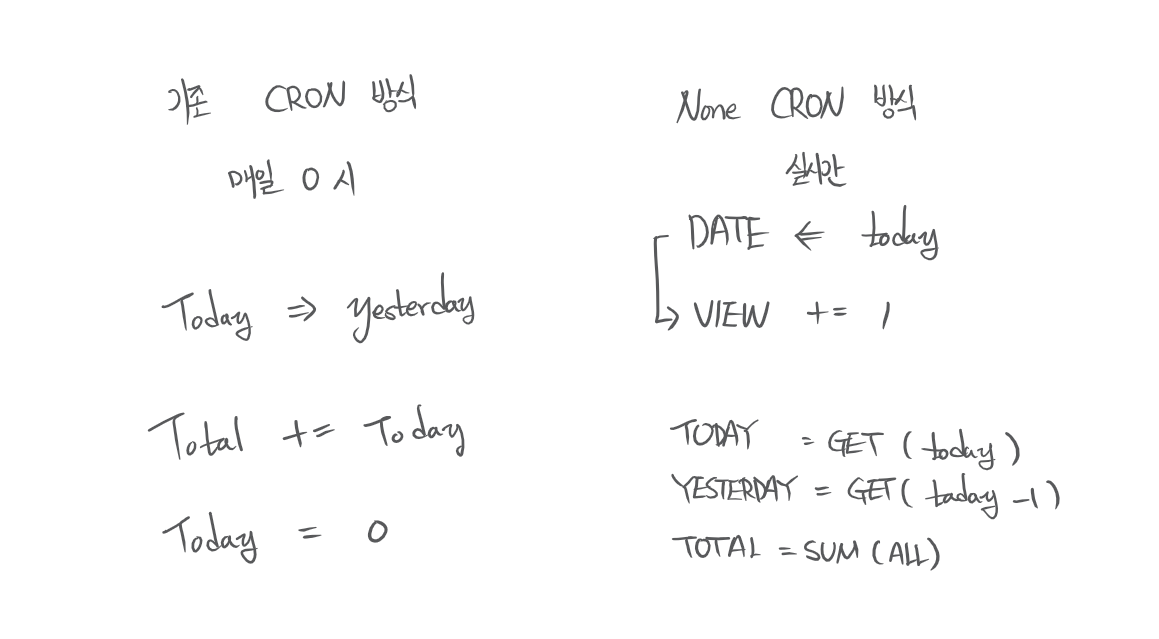 기존 CRON 방식
매일 0시
Today ⇒ yesterday
Total += Today
Today = 0
None CRON 방식
실시간
DATE ⇐ today
VIEW += 1
TODAY = GET (today)
YESTERDAY = GET (taday -1)
TOTAL = SUM (ALL)